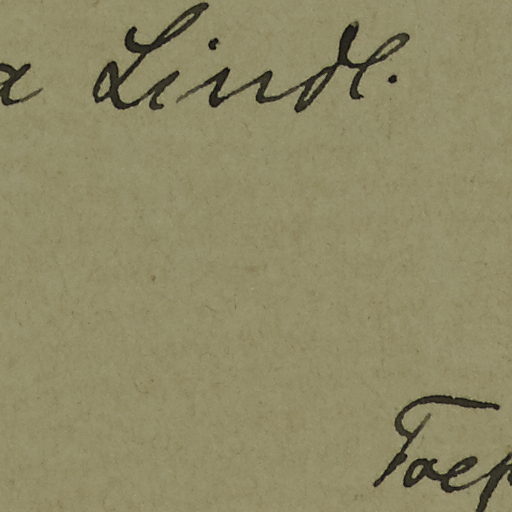 a Lindl.
Toep